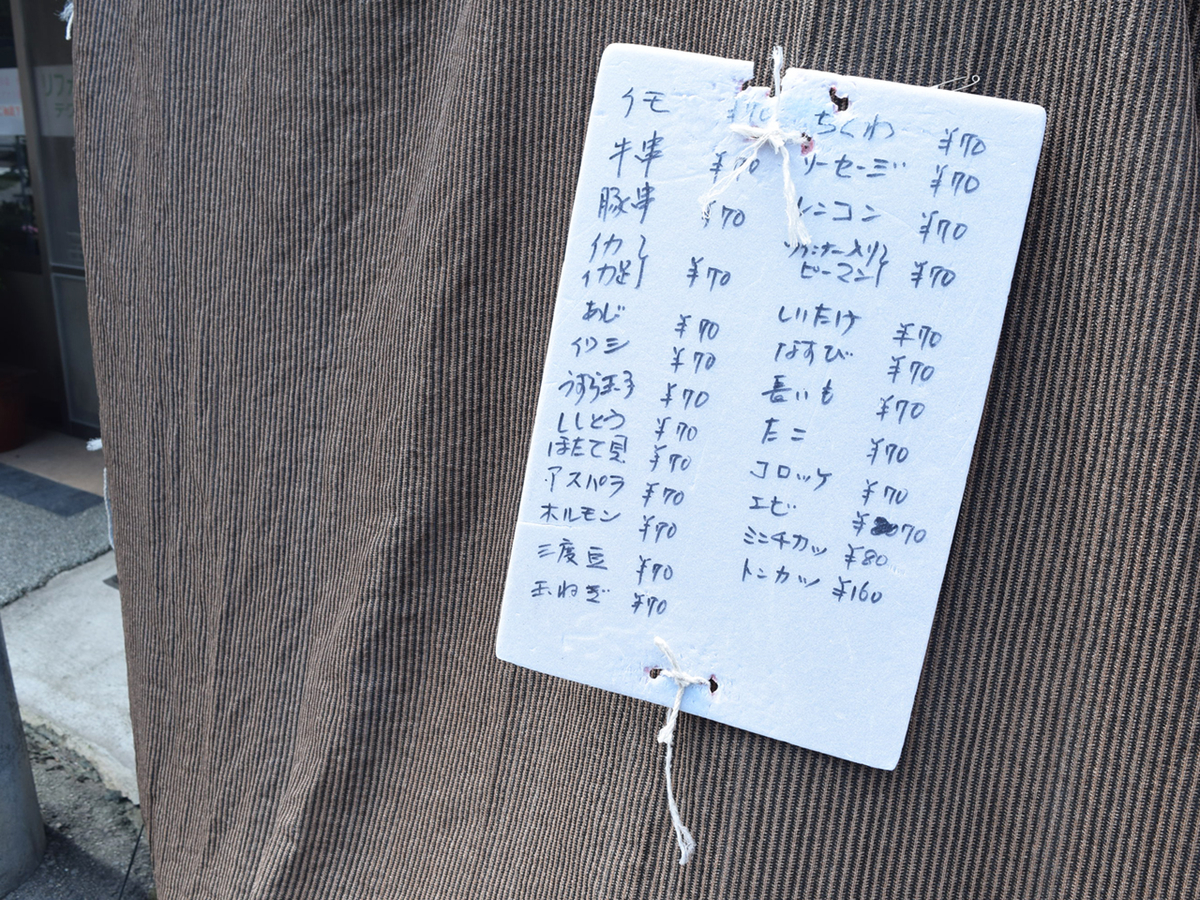 イモ ¥70
牛串 ¥70
豚串 ¥70
イカ
イカ足 ¥70
あじ ¥70
イワシ ¥70
うずら玉子 ¥70
ししとう ¥70
ほたて貝 ¥70
アスパラ ¥70
ホルモン ¥70
三度豆 ¥70
玉ねぎ ¥70
ちくわ ¥70
ソーセージ ¥70
レンコン ¥70
ウインナー入り
ピーマン ¥70
しいたけ ¥70
なすび ¥70
長いも ¥70
たこ ¥70
コロッケ ¥70
エビ ¥70
ミンチカツ ¥80
トンカツ ¥160